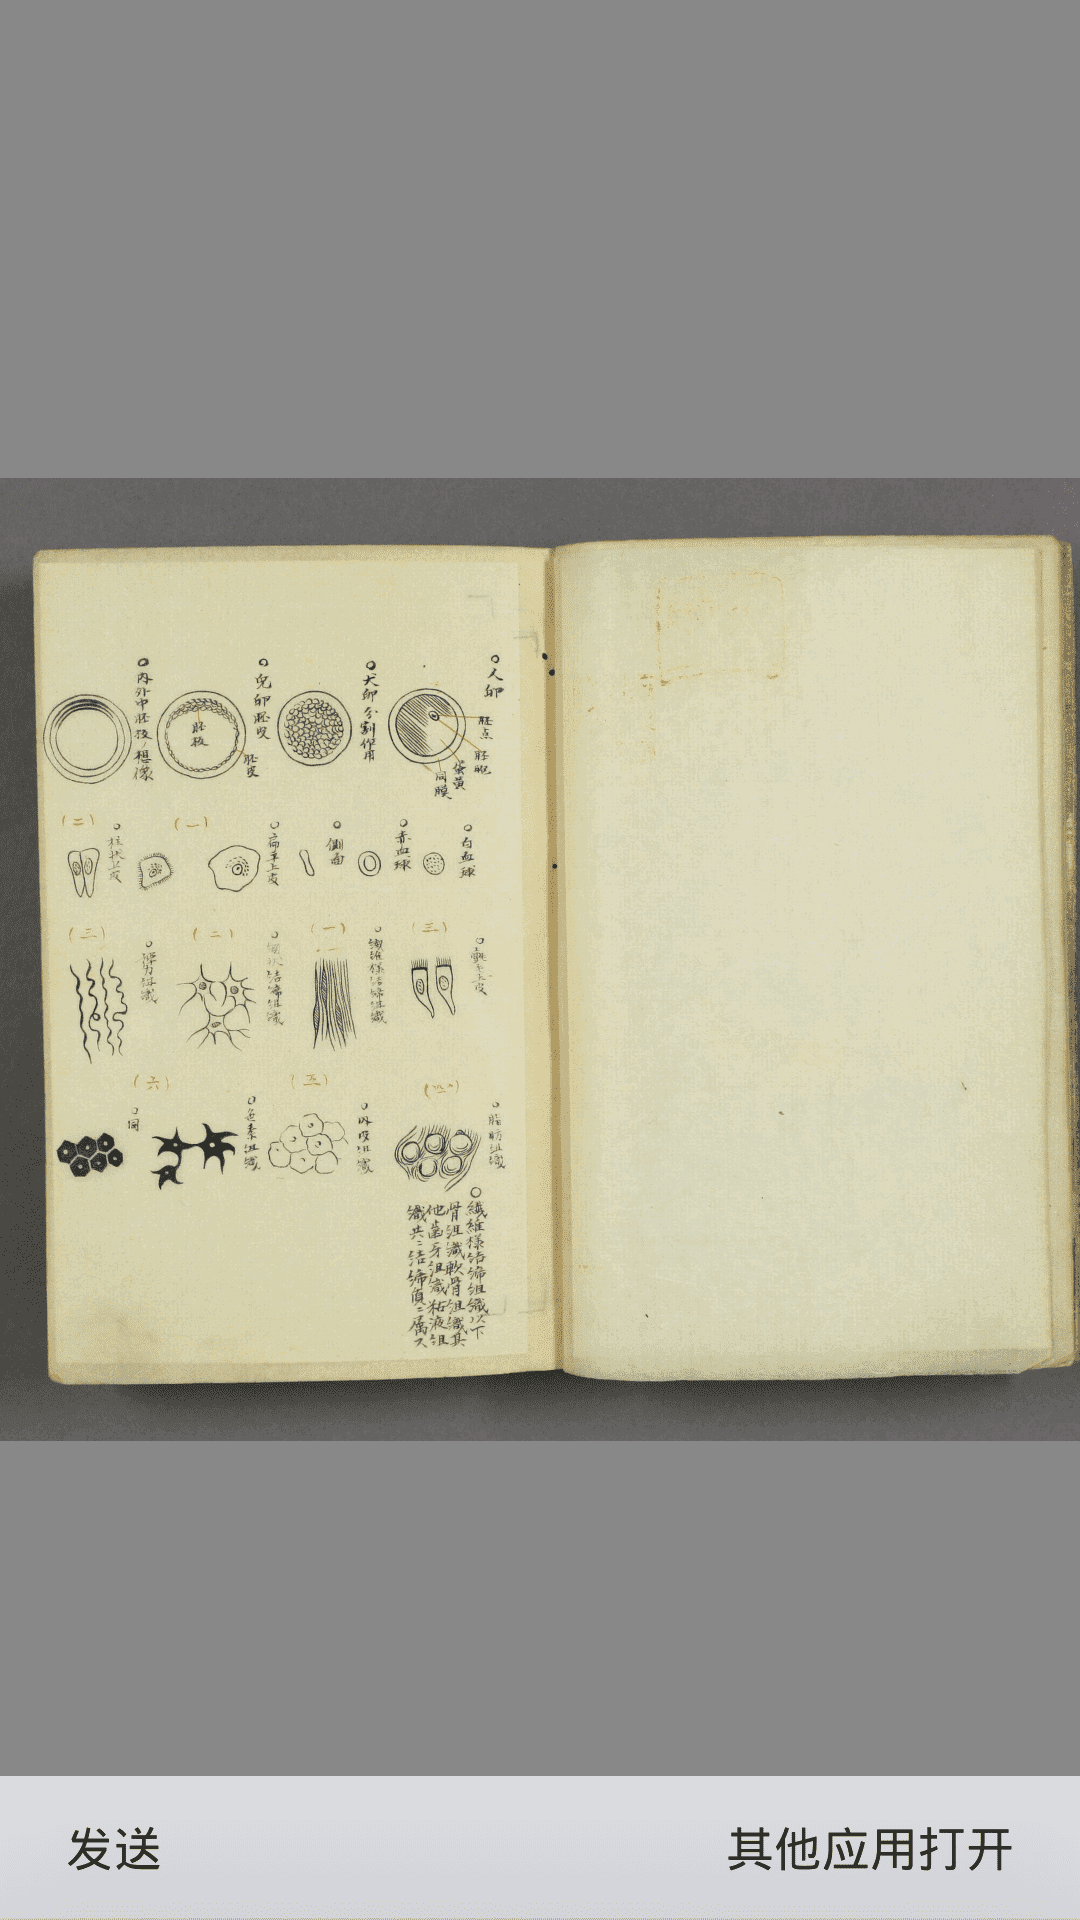 ○人卵
胚点
胚胞
蛋黄
同膜
○犬卵分割作用
○兎卵胚皮
胚板
胚皮
○内外中胚板ノ想像
○白血球
○赤血球
○側面
○扁平上皮
(一)
○柱状上皮
(二)
○氈毛上皮
(三)
○繊維様結締組織
(一)
○網状結締組織
(二)
○弾力組織
(三)
○脂肪組織
(四)
(五)
○色素組織
(六)
○同
○繊維様結締組織以下
骨組織軟骨組織其
他歯牙組織粘液組
織共ニ結締質ニ属ス
发送
其他应用打开